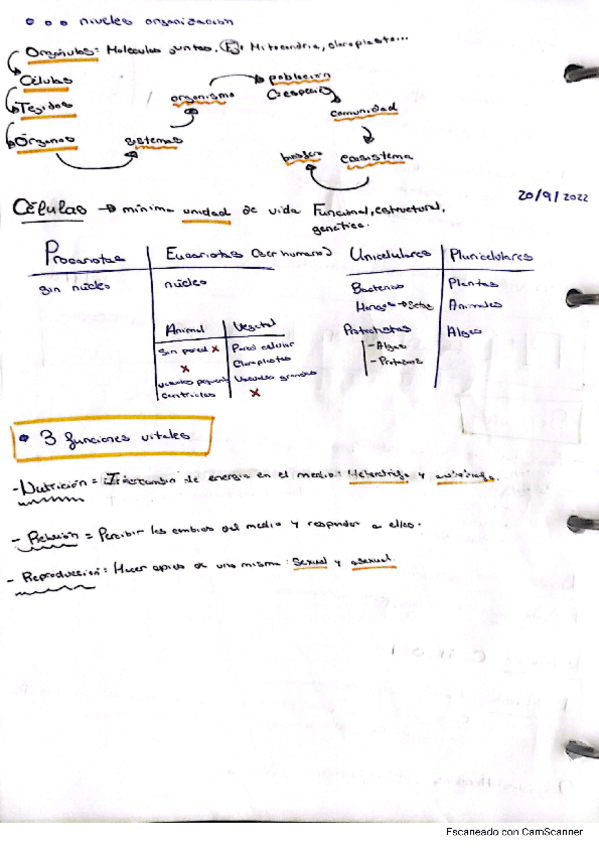 niveles organización
Orgánulos: Moleculas juntas. Ej: Mitocondria, cloroplasto...
Células
Tejidos
Órganos
sistemas
organismo
población
(especie)
comunidad
ecosistema
biosfera
20/9/2022
Células → mínima unidad de vida Funcional, estructural,
genética.
Procariotas Eucariotas (ser humano)
sin núcleo núcleo
Animal Vegetal
Sin pared x Pared celular
x Cloroplastos
vacuolas pequeñas Vacuolas grandes
centriolos x
Unicelulares Pluricelulares
Bacterias Plantas
Hongos → Setas Animales
Protoctistas Algas
- Algas
- Protozoos
• 3 funciones vitales
- Nutrición = Intercambio de energía en el medio: Heterótrofa y autótrofa.
- Relación = Percibir los cambios del medio y responder a ellos.
- Reproducción: Hacer copias de uno mismo: Sexual y asexual.
Escaneado con CamScanner